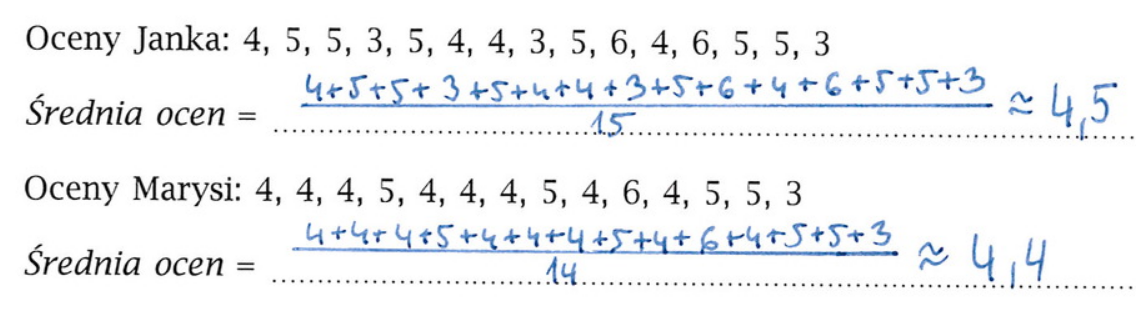 Oceny Janka: 4, 5, 5, 3, 5, 4, 4, 3, 5, 6, 4, 6, 5, 5, 3
Średnia ocen = 4+5+5+3+5+4+4+3+5+6+4+6+5+5+3 / 15 ≈ 4,5
Oceny Marysi: 4, 4, 4, 5, 4, 4, 4, 5, 4, 6, 4, 5, 5, 3
Średnia ocen = 4+4+4+5+4+4+4+5+4+6+4+5+5+3 / 14 ≈ 4,4